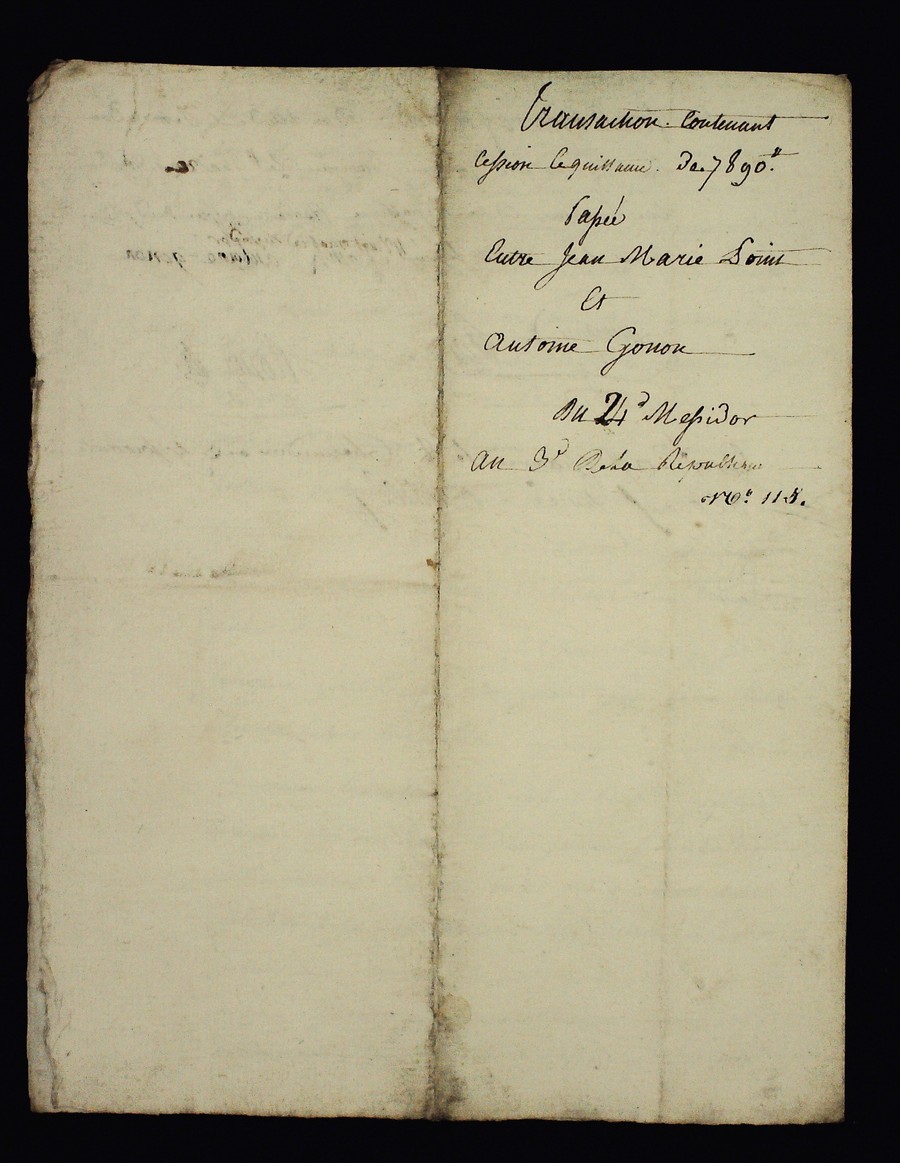 Transaction Contenant
Cession Cequittance. De 7890.ᵗᵗ
Passée
Entre Jean Marie Point
Et
Antoine Gonon
Du 24ᵈ Messidor
An 3ᵈ De La Republique
Nº. 115.